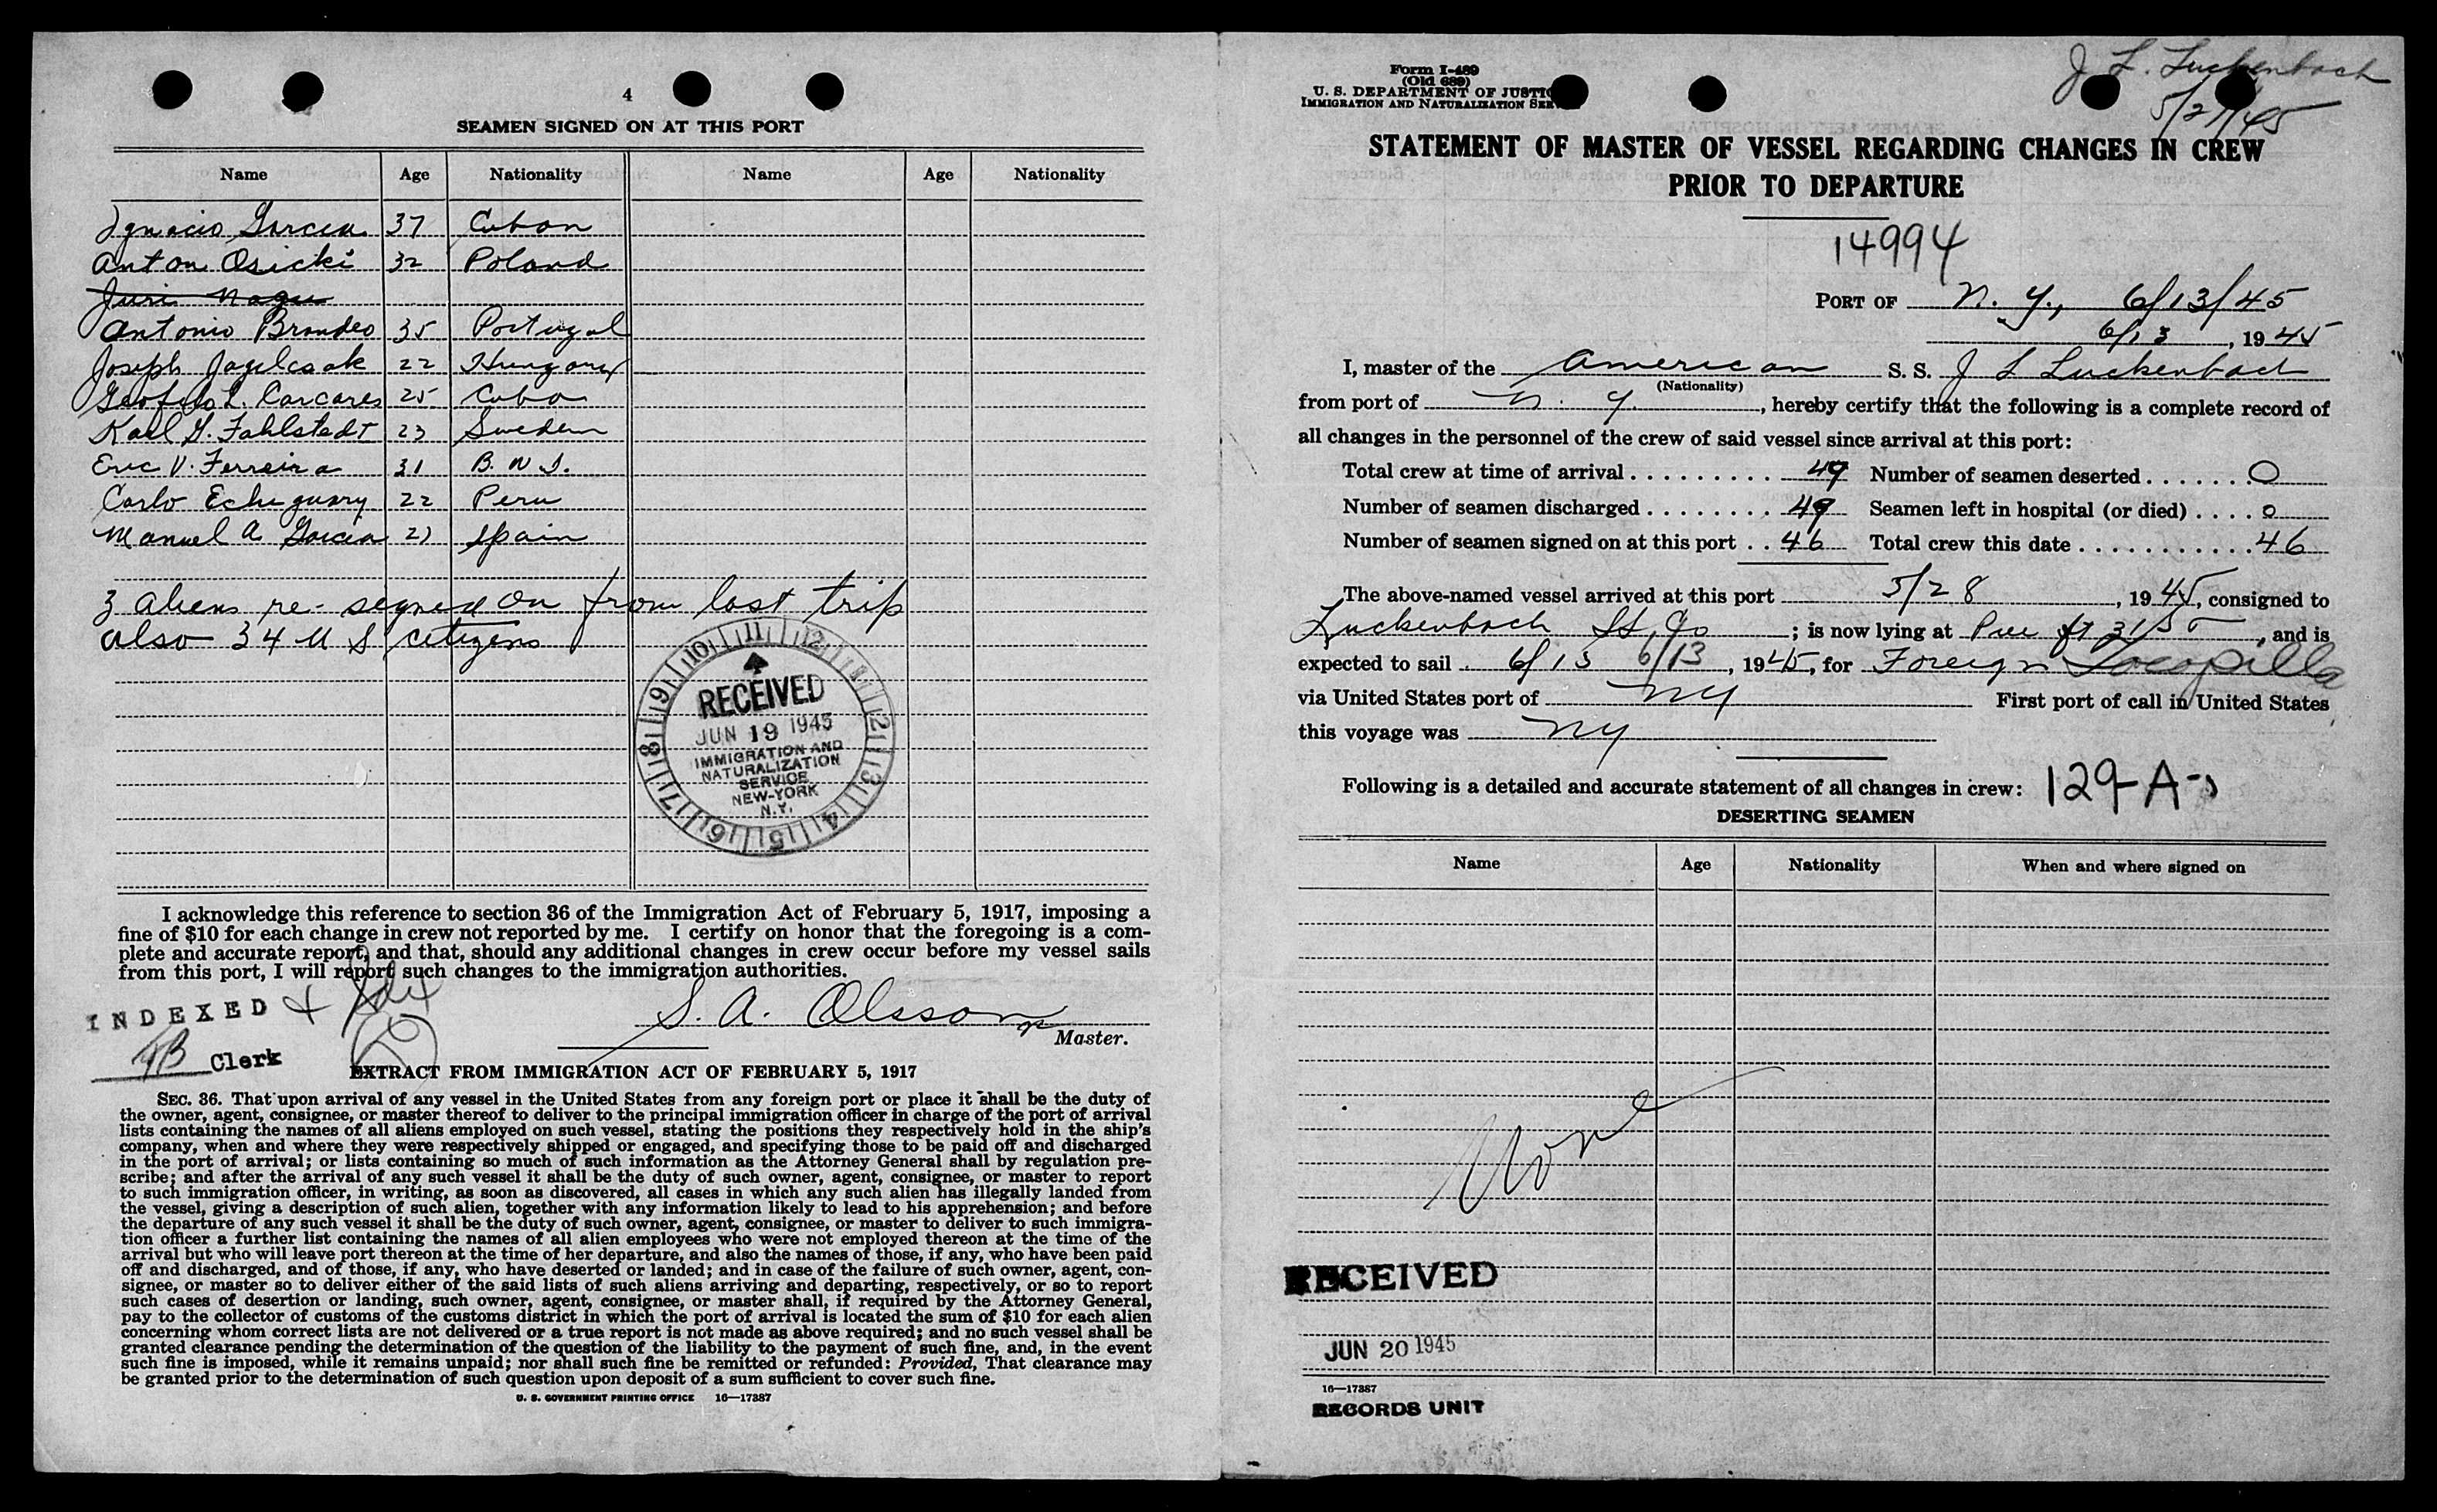 4
SEAMEN SIGNED ON AT THIS PORT
Name Age Nationality Name Age Nationality
Ignacio Garcia 37 Cuban
Anton Osicki 32 Poland
Juri Nagu
Antonio Brandeo 35 Portugal
Joseph 22 Hungary
L. Carcares 25 Cuba
Karl G. Fahlstedt 23 Sweden
Eric V. Ferreira 31 B.W.I.
Carlo Echeguary 22 Peru
Manuel A Garcia Spain
3 aliens re-signed on from last trip
also 34 U S citizens
RECEIVED
JUN 19 1945
IMMIGRATION AND
NATURALIZATION
SERVICE
NEW-YORK
N.Y.
I acknowledge this reference to section 36 of the Immigration Act of February 5, 1917, imposing a
fine of $10 for each change in crew not reported by me. I certify on honor that the foregoing is a com-
plete and accurate report, and that, should any additional changes in crew occur before my vessel sails
from this port, I will report such changes to the immigration authorities.
INDEXED
S. A. Olsson
Master.
Clerk
EXTRACT FROM IMMIGRATION ACT OF FEBRUARY 5, 1917
SEC. 36. That upon arrival of any vessel in the United States from any foreign port or place it shall be the duty of
the owner, agent, consignee, or master thereof to deliver to the principal immigration officer in charge of the port of arrival
lists containing the names of all aliens employed on such vessel, stating the positions they respectively hold in the ship's
company, when and where they were respectively shipped or engaged, and specifying those to be paid off and discharged
in the port of arrival; or lists containing so much of such information as the Attorney General shall by regulation pre-
scribe; and after the arrival of any such vessel it shall be the duty of such owner, agent, consignee, or master to report
to such immigration officer, in writing, as soon as discovered, all cases in which any such alien has illegally landed from
the vessel, giving a description of such alien, together with any information likely to lead to his apprehension; and before
the departure of any such vessel it shall be the duty of such owner, agent, consignee, or master to deliver to such immigra-
tion officer a further list containing the names of all alien employees who were not employed thereon at the time of the
arrival but who will leave port thereon at the time of her departure, and also the names of those, if any, who have been paid
off and discharged, and of those, if any, who have deserted or landed; and in case of the failure of such owner, agent, con-
signee, or master so to deliver either of the said lists of such aliens arriving and departing, respectively, or so to report
such cases of desertion or landing, such owner, agent, consignee, or master shall, if required by the Attorney General,
pay to the collector of customs of the customs district in which the port of arrival is located the sum of $10 for each alien
concerning whom correct lists are not delivered or a true report is not made as above required; and no such vessel shall be
granted clearance pending the determination of the question of the liability to the payment of such fine, and, in the event
such fine is imposed, while it remains unpaid; nor shall such fine be remitted or refunded: Provided, That clearance may
be granted prior to the determination of such question upon deposit of a sum sufficient to cover such fine.
U. S. GOVERNMENT PRINTING OFFICE 16—17387
J. L. Luckenbach
5/27/45
Form I-489
(Old 689)
U. S. DEPARTMENT OF JUSTIC
IMMIGRATION AND NATURALIZATION SER
STATEMENT OF MASTER OF VESSEL REGARDING CHANGES IN CREW
PRIOR TO DEPARTURE
14994
PORT OF N. Y., 6/13/45
6/13, 1945
I, master of the American S. S. J L Luckenbach
(Nationality)
from port of N. Y., hereby certify that the following is a complete record of
all changes in the personnel of the crew of said vessel since arrival at this port:
Total crew at time of arrival . . . . . . . . . 49 Number of seamen deserted . . . . . . . 0
Number of seamen discharged . . . . . . . . 49 Seamen left in hospital (or died) . . . . 0
Number of seamen signed on at this port . . 46 Total crew this date . . . . . . . . . . . . 46
The above-named vessel arrived at this port 5/28, 1945, consigned to
Luckenbach SS Co; is now lying at Pier ft 31, and is
expected to sail 6/13 6/13, 1945, for Foreign Tocopilla
via United States port of NY First port of call in United States
this voyage was NY
Following is a detailed and accurate statement of all changes in crew: 129-A-
DESERTING SEAMEN
Name Age Nationality When and where signed on
None
RECEIVED
JUN 20 1945
16—17387
RECORDS UNIT